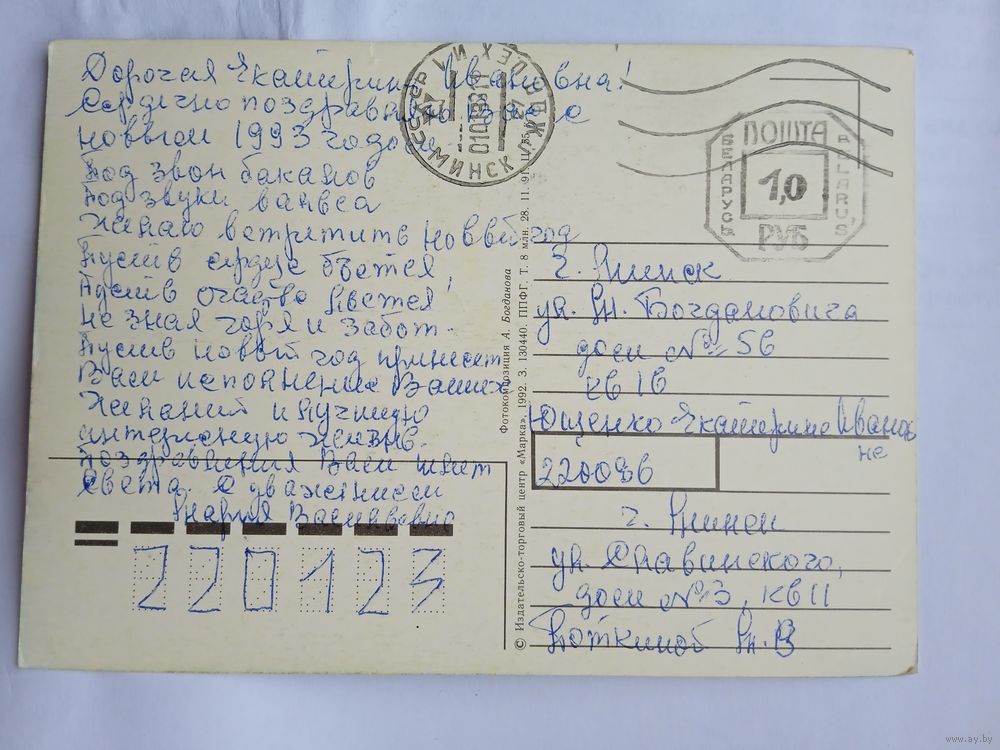 Дорогая Екатерина Ивановна!
Сердечно поздравляем Вас с
Новым 1993 годом
Под звон бакалов
Под звуки вальса
Желаю встретить Новый год
Пусть сердце бьется
Пусть счастье льется!
Не зная горя и забот.
Пусть новый год принесет
Вам исполнение Ваших
Желаний и лучшую
интересную жизнь.
Поздравления Вам шлет
Света. С уважением
Мария Васильевна
220123
МИНСК
ПОШТА
БЕЛАРУСЬ
BELARUS
1,0
РУБ
Фотокомпозиция А. Богданова
© Издательско-торговый центр «Марка», 1992. З. 130440. ППФГ. Т. 8 млн. 28. 11. 91. Ц. 55
г. Минск
ул. М. Богдановича
дом № 56
кв 16
Ющенко Екатерине Иванов
не
220086
г. Минск
ул. Славинского,
дом № 3, кв 11
М. В.
www.ay.by